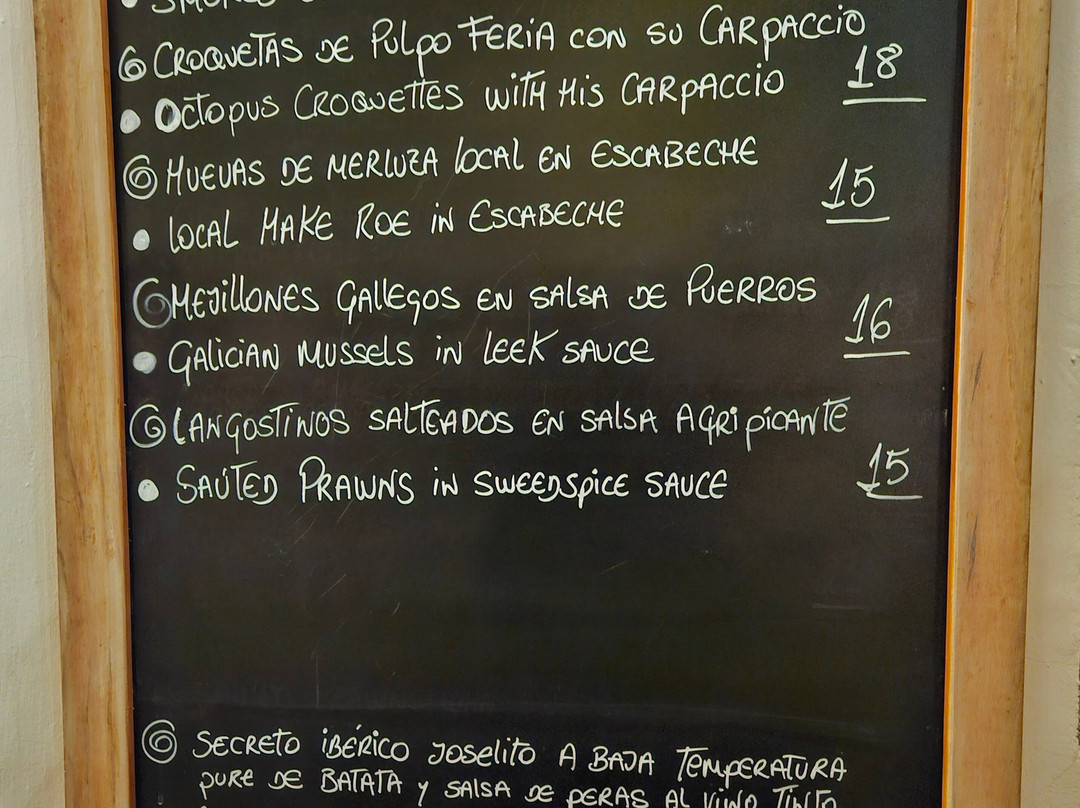 CROQUETAS DE PULPO FERIA CON SU CARPACCIO
18
OCTOPUS CROQUETTES WITH HIS CARPACCIO
HUEVAS DE MERLUZA LOCAL EN ESCABECHE
15
LOCAL HAKE ROE IN ESCABECHE
MEJILLONES GALLEGOS EN SALSA DE PUERROS
16
GALICIAN MUSSELS IN LEEK SAUCE
LANGOSTINOS SALTEADOS EN SALSA AGRIPICANTE
15
SAUTED PRAWNS IN SWEEDSPICE SAUCE
SECRETO IBÉRICO JOSELITO A BAJA TEMPERATURA
PURE DE BATATA Y SALSA DE PERAS AL VINO TINTO